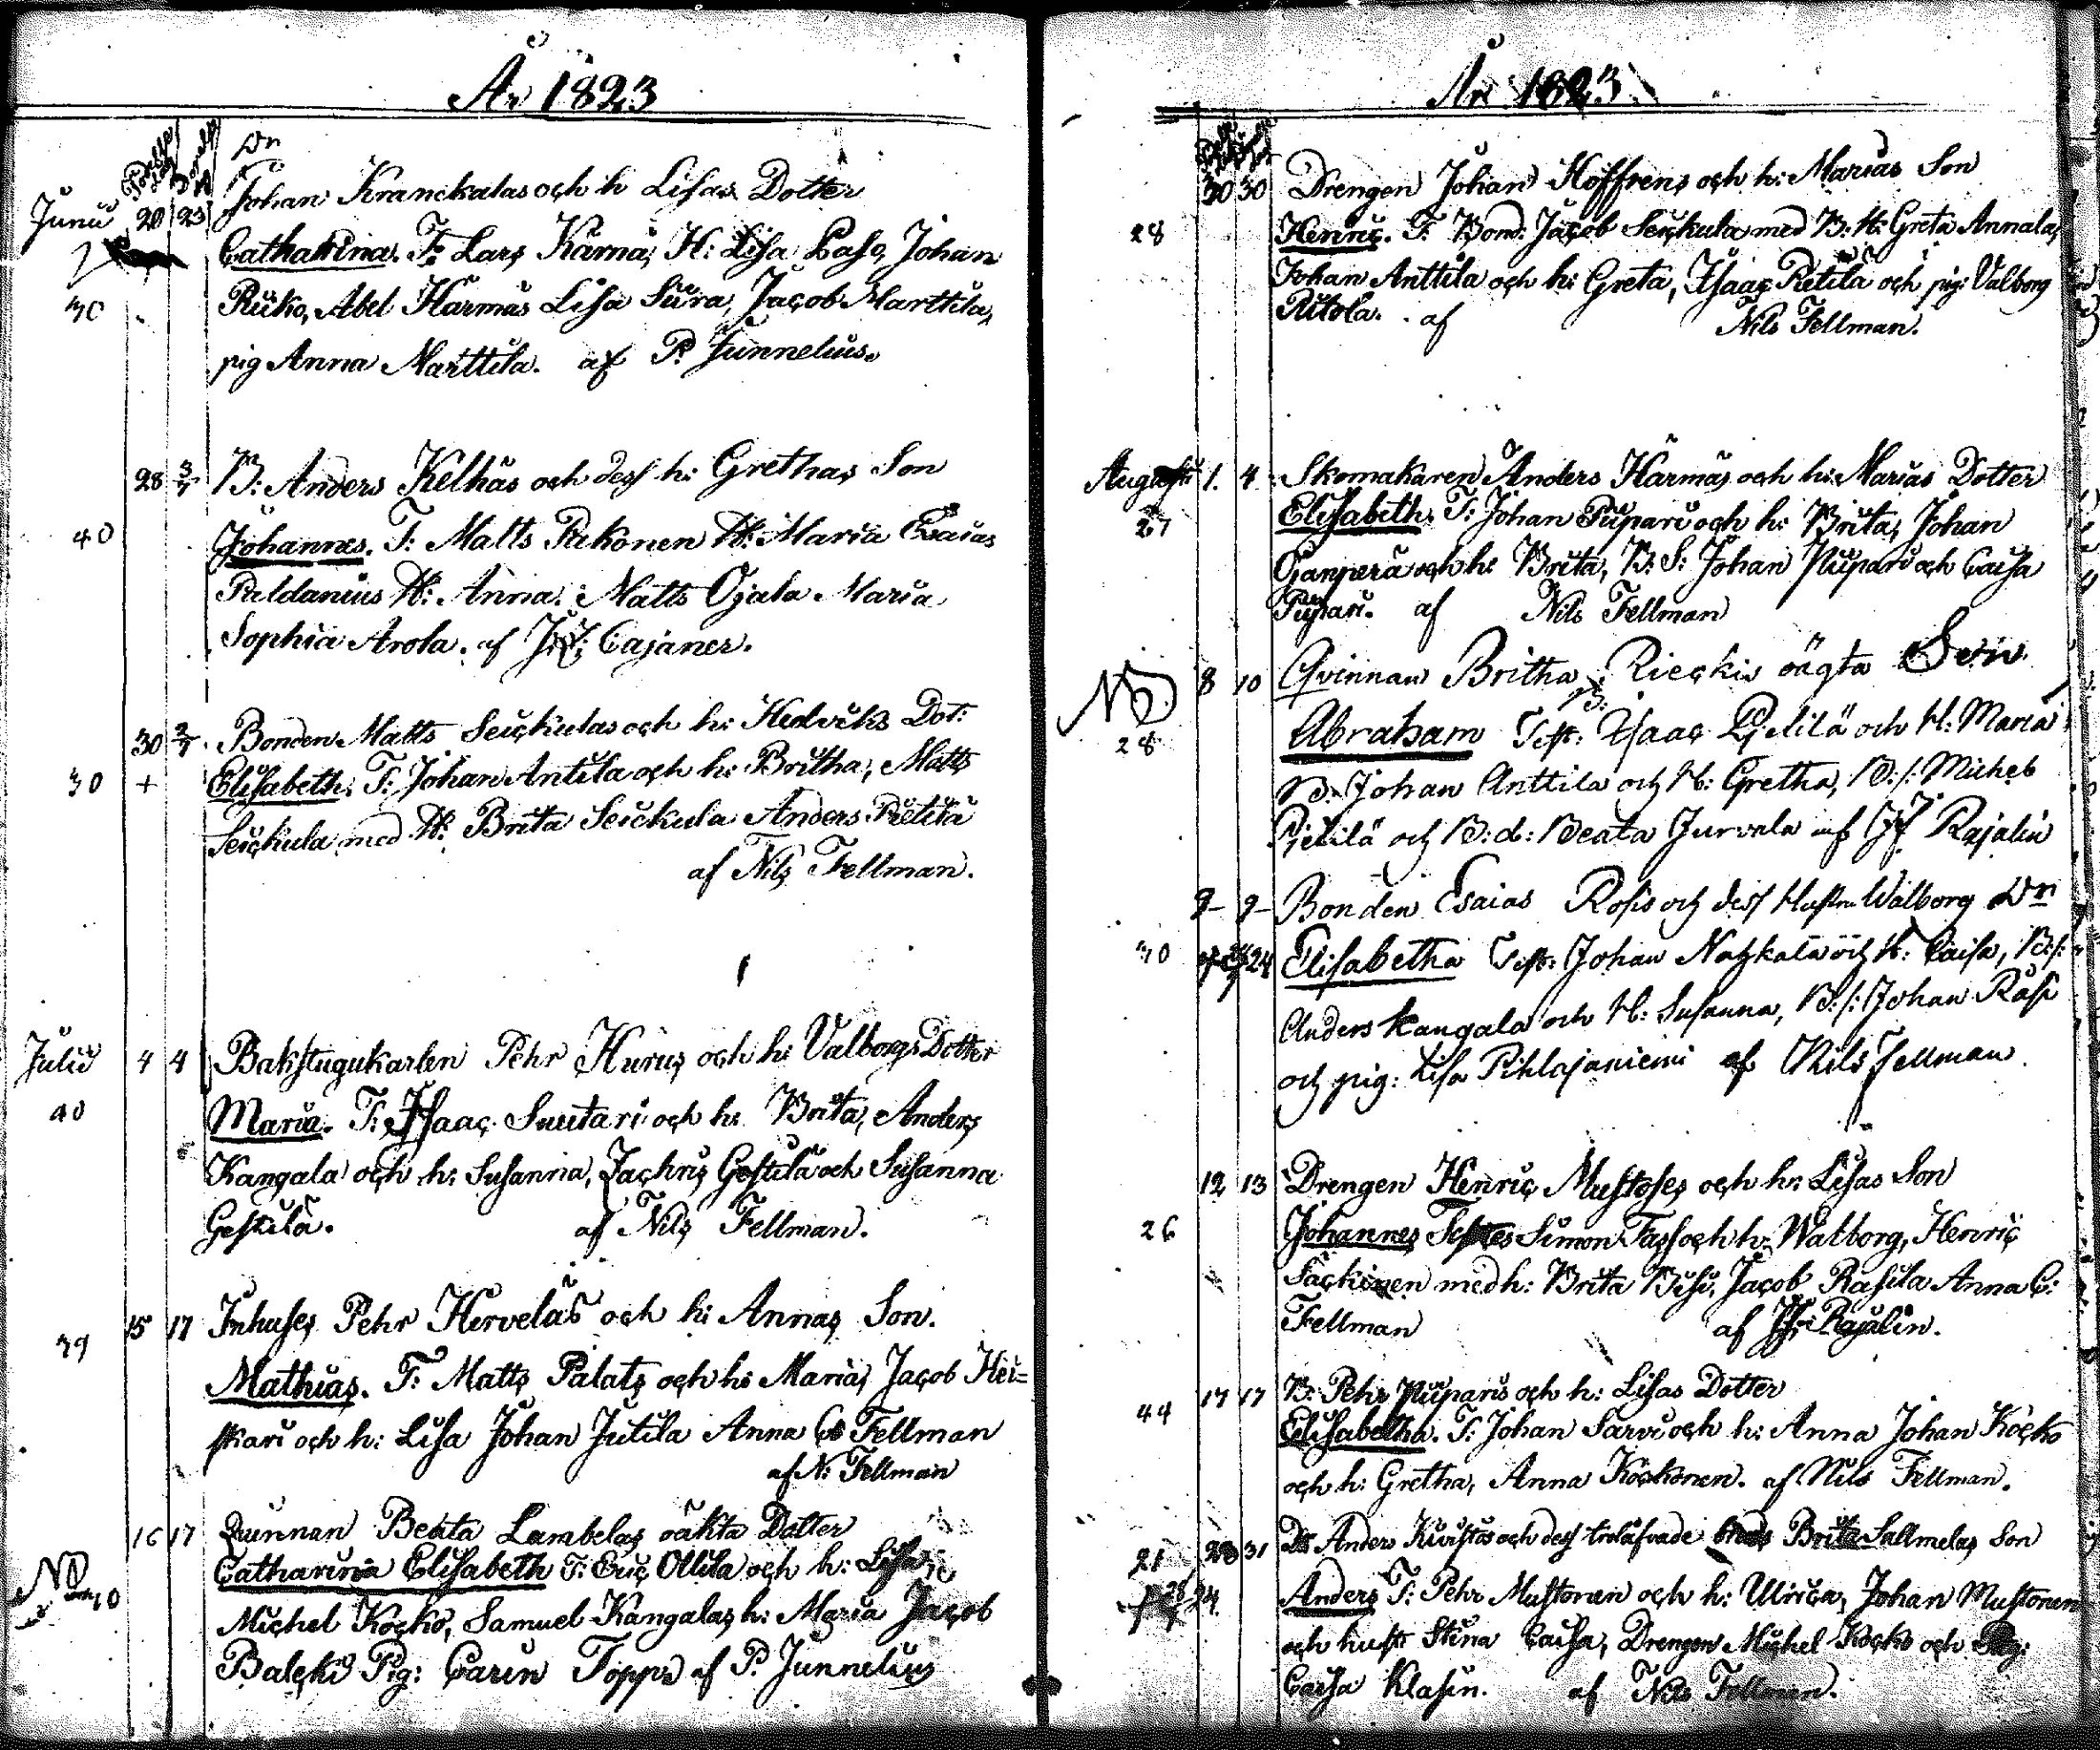 År 1823
Dn
Junii 20 23 Johan Kranckalas och h Lisas Dotter
Catharina. F: Lars Kärnä, H: Lisa Pass, Johan
30 Ruko, Abel Härmäs Lisa Sura, Jacob Marttila,
pig Anna Marttila. af P. Junnelius.
28 3/7 B: Anders Kelhäs och dess h: Grethas Son
40 Johannes. F: Matts Pakonen H: Maria Esaias
Paldanius H: Anna. Matts Ojala Maria
Sophia Arola. af Cajaner.
30 2/7 Bonden Matts Seickulas och h: Hedviks Dot:
30 + Elisabeth. F: Johan Antila och h: Britha, Matts
Seickula med H: Brita Seickula Anders Pietilä
af Nils Fellman.
Julii 4 4 Bakstugukarlen Pehr Hurus och h: Valborgs Dotter
40 Maria. F: Isaac Suutari och h: Brita, Anders
Kangala och h: Susanna, Zachris Gestilä och Susanna
Gestilä. af Nils Fellman.
15 17 Inhuses Pehr Hervelas och h: Annas Son.
39 Mathias. F: Matts Palats och h: Maria, Jacob Hei=
skari och h: Lisa Johan Jutila Anna C: Fellman
af N: Fellman
16 17 Quinnan Beata Lambelas oäkta Dotter
NB 40 Catharina Elisabeth F: Eric Ollila och h: Lisa,
Michel Kocko, Samuel Kangalas h: Maria Jacob
Balcki Pig: Carin Toppo af P. Junnelius
År 1823
30 30 Drengen Johan Hoffrens och h: Marias Son
28 Henric. F: Bond: Jacob Seickula med B: H: Greta Annala,
Johan Anttila och h: Greta, Isaac Pietilä och pig: Valborg
Ritola. af Nils Fellman.
Augusti 1. 4 Skomakaren Anders Härmäs och h: Marias Dotter
27 Elisabeth. F: Johan Pupari och h: Brita, Johan
Ojanperä och h: Brita, B: S: Johan Nupari och Caisa
Pupari. af Nils Fellman
NB 8 10 Qvinnan Britha Rieckis oägta Son
28 Abraham Test: B: Isaac Pjetilä och H: Maria
B: Johan Anttila och H: Gretha, B: s: Michel
Pjetilä och B: d: Beata Jurvala af Rajalin
9 9 Bonden Esaias Rosis och dess Hustru Walborg Dn
30 24 Elisabetha Test: Johan Natzkala och H: Caisa, B: s:
Anders Kangala och H: Susanna, B: s: Johan Rasi
och pig: Lisa Pihlajaniemi af Nils Fellman.
12 13 Drengen Henric Mustoses och h: Lisas Son
26 Johannes Testes Simon Tass och h: Walborg, Henric
Säckinen med h: Brita Bisi, Jacob Rasila Anna C:
Fellman af Rajalin.
44 17 17 B: Pehr Nuparis och h: Lisas Dotter
Elisabetha. F: Johan Sarvi och h: Anna Johan Kocko
och h: Gretha, Anna Kockonen. af Nils Fellman.
21 28 31 Dr Anders Kivistös och dess trolåfvade Brita Sallmelas Son
Anders F: Pehr Mustonen och h: Ulrica, Johan Mustonen
och hustr Stina Caisa, Drengen Michel Kocko och Pig:
Caisa Klasin. af Nils Fellman.